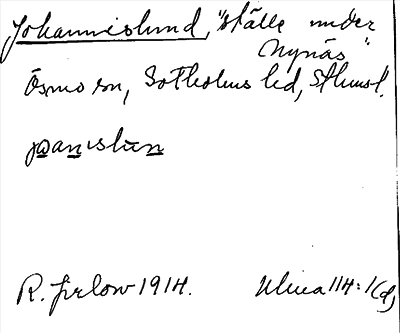 Johannislund, "ställe under
Nynäs"
Ösmo sn, Sotholms hd, Sthmsl.
R. Jirlow 1914. Ulma 114:1(d)